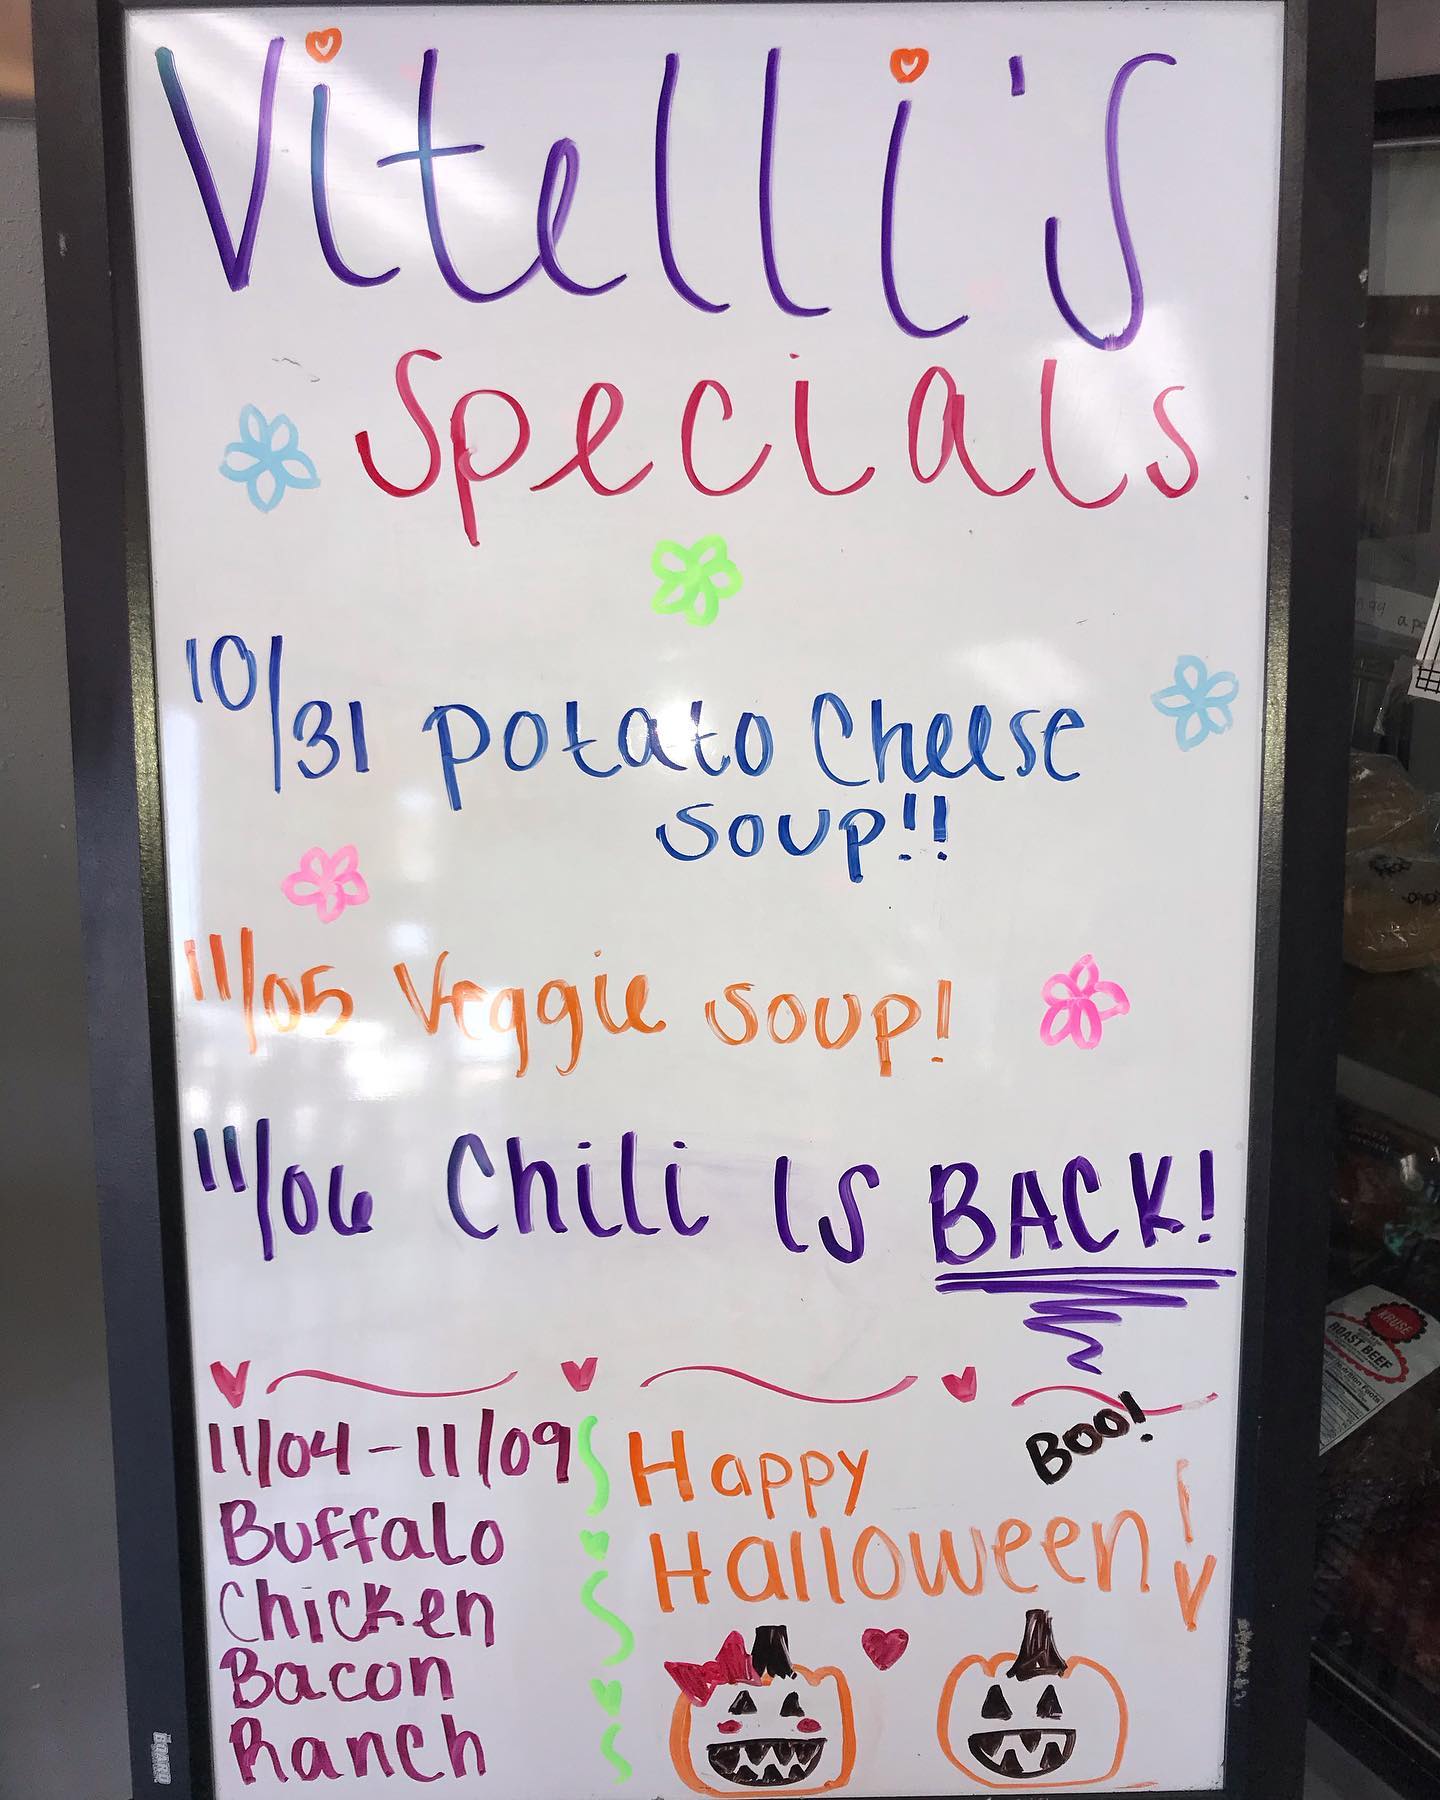 Vitelli's
Specials
10/31 Potato Cheese
Soup!!
11/05 Veggie Soup!
11/06 Chili is BACK!
11/04-11/09
Buffalo
Chicken
Bacon
Ranch
Boo!
Happy
Halloween!
KRUSE
ROAST BEEF